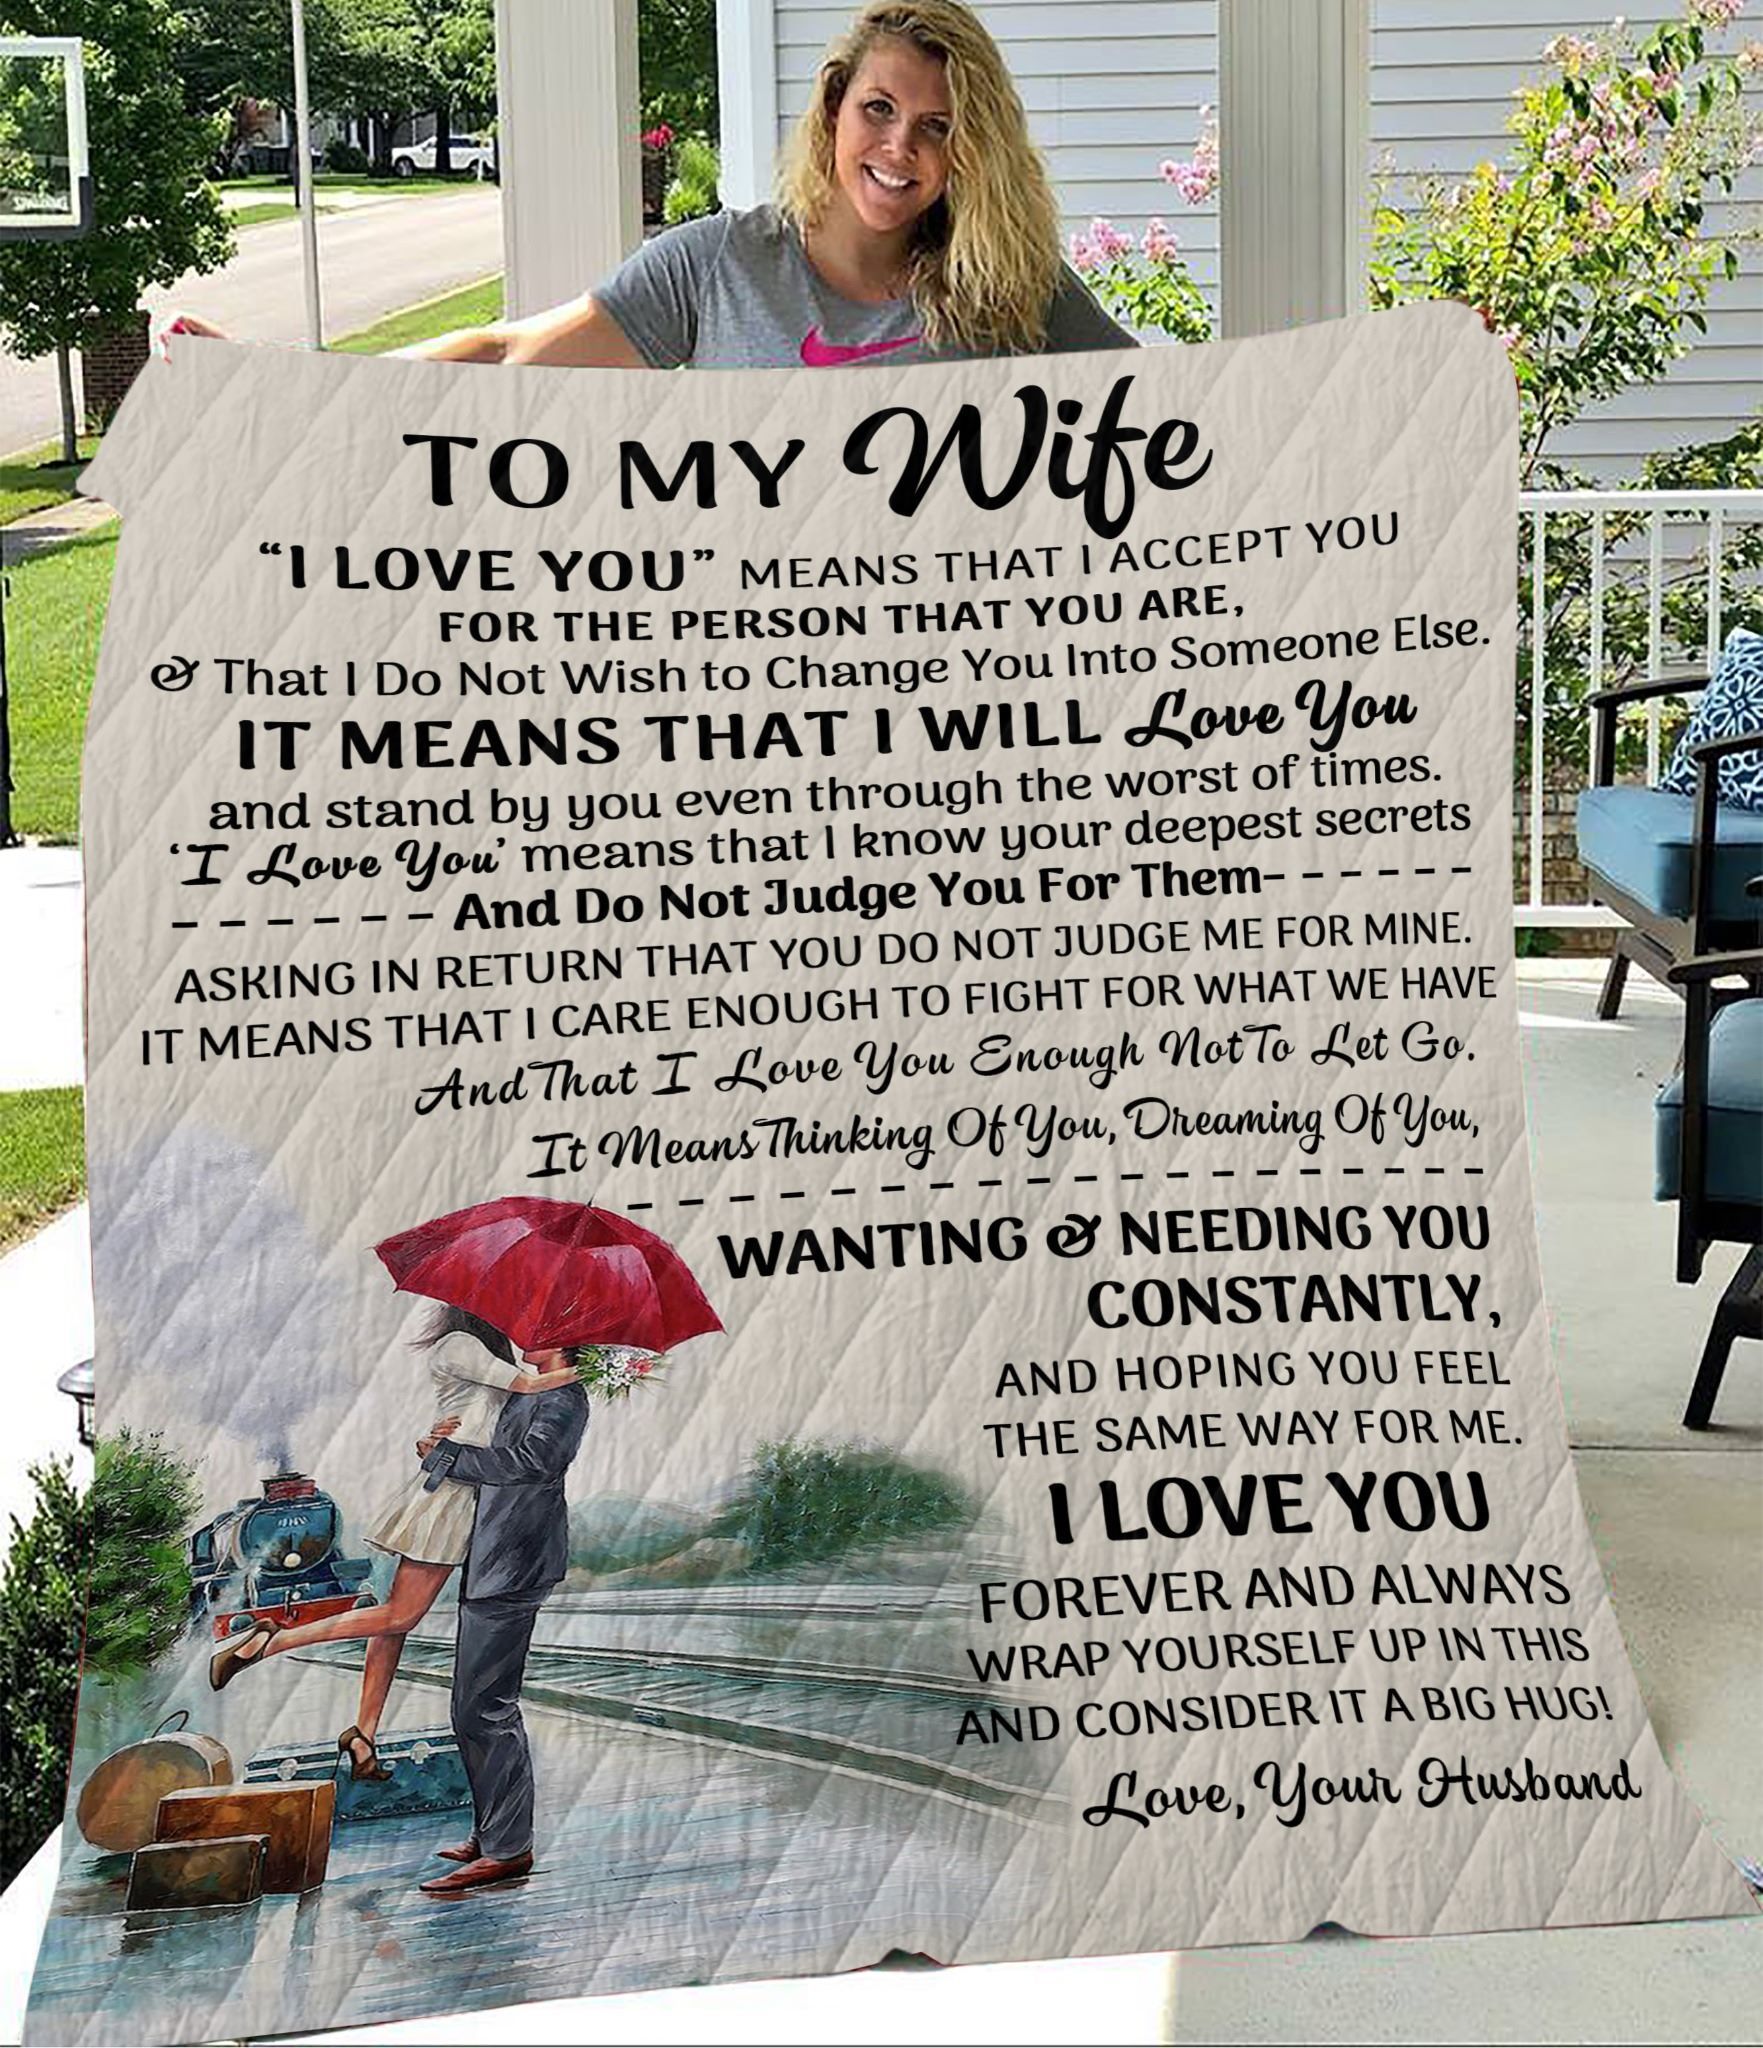 SPALDING
TO MY Wife
“I LOVE YOU” MEANS THAT I ACCEPT YOU
FOR THE PERSON THAT YOU ARE,
& That I Do Not Wish to Change You Into Someone Else.
IT MEANS THAT I WILL Love You
and stand by you even through the worst of times.
‘I Love You’ means that I know your deepest secrets
- - - - - - And Do Not Judge You For Them- - - - - -
ASKING IN RETURN THAT YOU DO NOT JUDGE ME FOR MINE.
IT MEANS THAT I CARE ENOUGH TO FIGHT FOR WHAT WE HAVE
And That I Love You Enough Not To Let Go.
It Means Thinking Of You, Dreaming Of You,
WANTING & NEEDING YOU
CONSTANTLY,
AND HOPING YOU FEEL
THE SAME WAY FOR ME.
I LOVE YOU
FOREVER AND ALWAYS
WRAP YOURSELF UP IN THIS
AND CONSIDER IT A BIG HUG!
Love, Your Husband